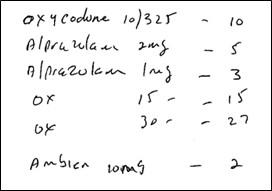 Oxycodone 10/325 - 10
Alprazolam 2mg - 5
Alprazolam 1mg - 3
OX 15 - - 15
OX 30 - - 27
Ambien 10mg - 2